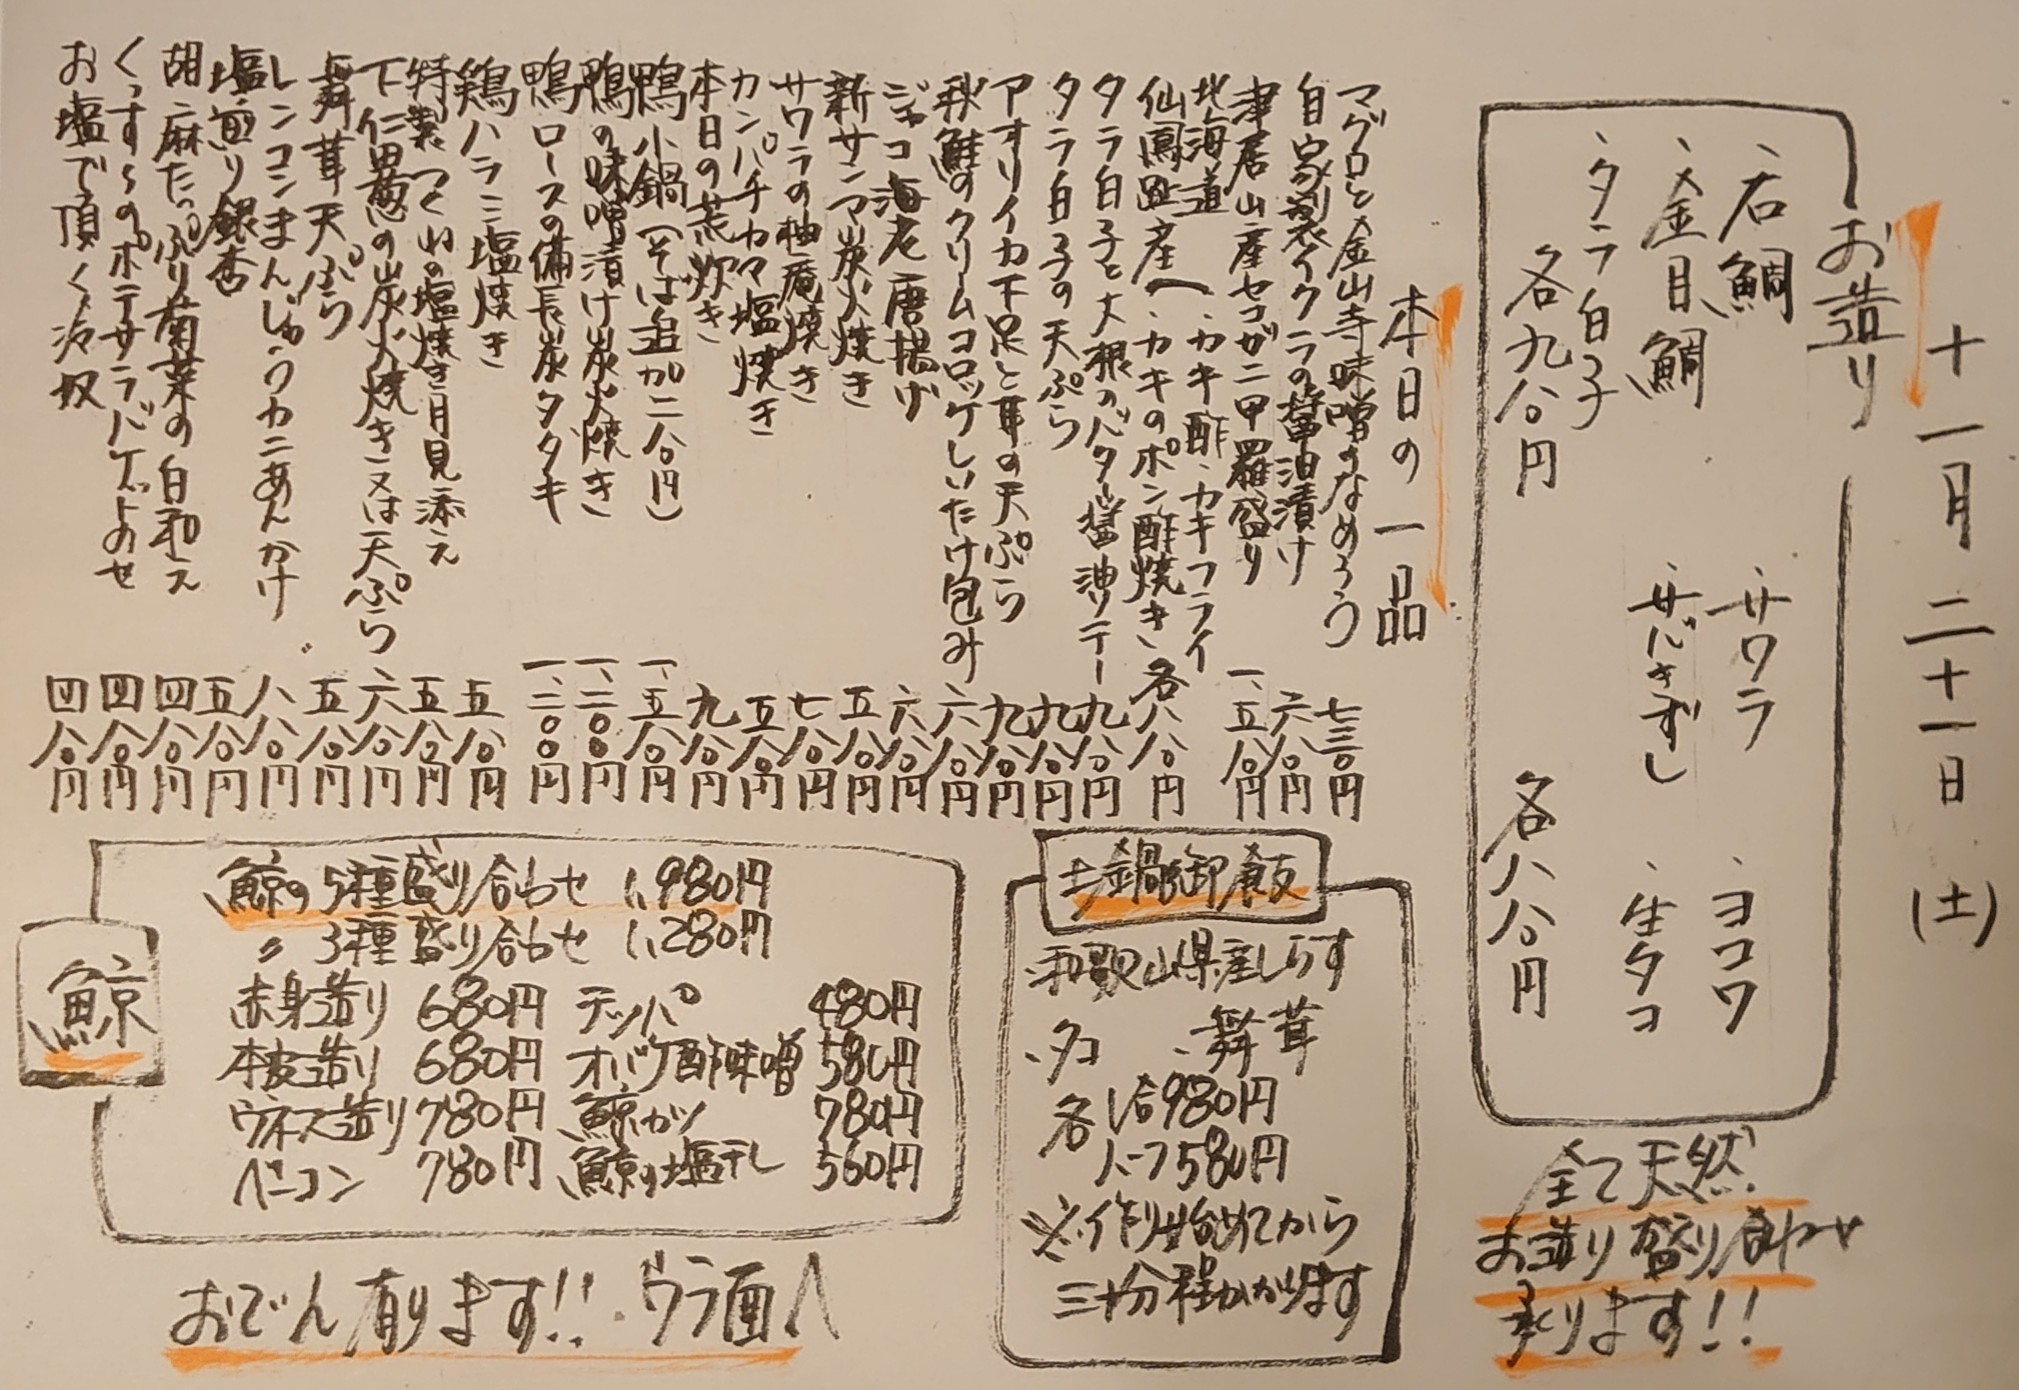 十一月二十一日(土)
お造り
、石鯛
、サワラ
、ヨコワ
、金目鯛
、サバきずし
、生タコ
、タラ白子
各九八〇円
各八八〇円
全て天然
お造り盛り合わせ
承ります!!
本日の一品
マグロと金山寺味噌のなめろう 七三〇円
自家製イクラの醤油漬け 六八〇円
津居山産セコガニ甲羅盛り 一、五八〇円
北海道
仙鳳趾産へ、カキ酢、カキフライ
、カキのポン酢焼き、各八八〇円
タラ白子と大根のバター醤油ソテー 九八〇円
タラ白子の天ぷら 九八〇円
アオリイカ下足と茸の天ぷら 九八〇円
秋鮭のクリームコロッケしいたけ包み 六八〇円
ジャコ海老唐揚げ 六八〇円
新サンマ炭火焼き 五八〇円
サワラの柚庵焼き 七八〇円
カンパチカマ塩焼き 五八〇円
本日の荒炊き 九八〇円
鴨小鍋(そば追加二八〇円) 一、五八〇円
鴨の味噌漬け炭火焼き 一、二〇〇円
鴨ロースの備長炭タタキ 一、二〇〇円
鶏ハラミ塩焼き 五八〇円
特製つくねの塩焼き月見添え 五八〇円
下仁田葱の炭火焼き又は天ぷら 六八〇円
舞茸天ぷら 五八〇円
レンコンまんじゅうカニあんかけ 八八〇円
塩煎り銀杏 五八〇円
胡麻たっぷり菊菜の白和え 四八〇円
くっす〜のポテサラバゲットのせ 四八〇円
お塩で頂く冷奴 四八〇円
土鍋御飯
、和歌山県産しらす
、タコ 、舞茸
各1合980円
ハーフ580円
※作り始めてから
三十分程かかります
鯨
鯨の5種盛り合わせ 1,980円
〃 3種盛り合わせ 1,280円
赤身造り 680円 テッパ 480円
本皮造り 680円 オバケ酢味噌 580円
ウネス造り 780円 鯨カツ 780円
ベーコン 780円 鯨の塩干し 560円
おでん有ります!!、ウラ面へ